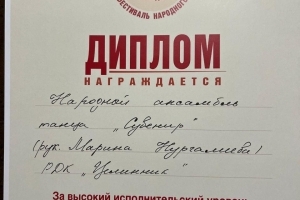 ФЕСТИВАЛЬ НАРОДНОГО
ДИПЛОМ
НАГРАЖДАЕТСЯ
Народной ансамбль
танца „Сувенир"
(рук. Марина Нургалиева)
РДК „Целинник"
За высокий исполнительский уровень